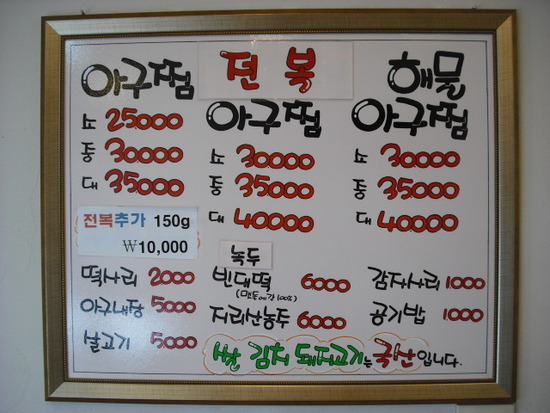 아구찜
소 25000
중 30000
대 35000
전복추가 150g
₩10,000
떡사리 2000
아구내장 5000
살고기 5000
전복
아구찜
소 30000
중 35000
대 40000
녹두
빈대떡 6000
100%)
지리산농주 6000
해물
아구찜
소 30000
중 35000
대 40000
감자사리 1000
공기밥 1000
쌀 김치 돼지고기는 국산입니다.